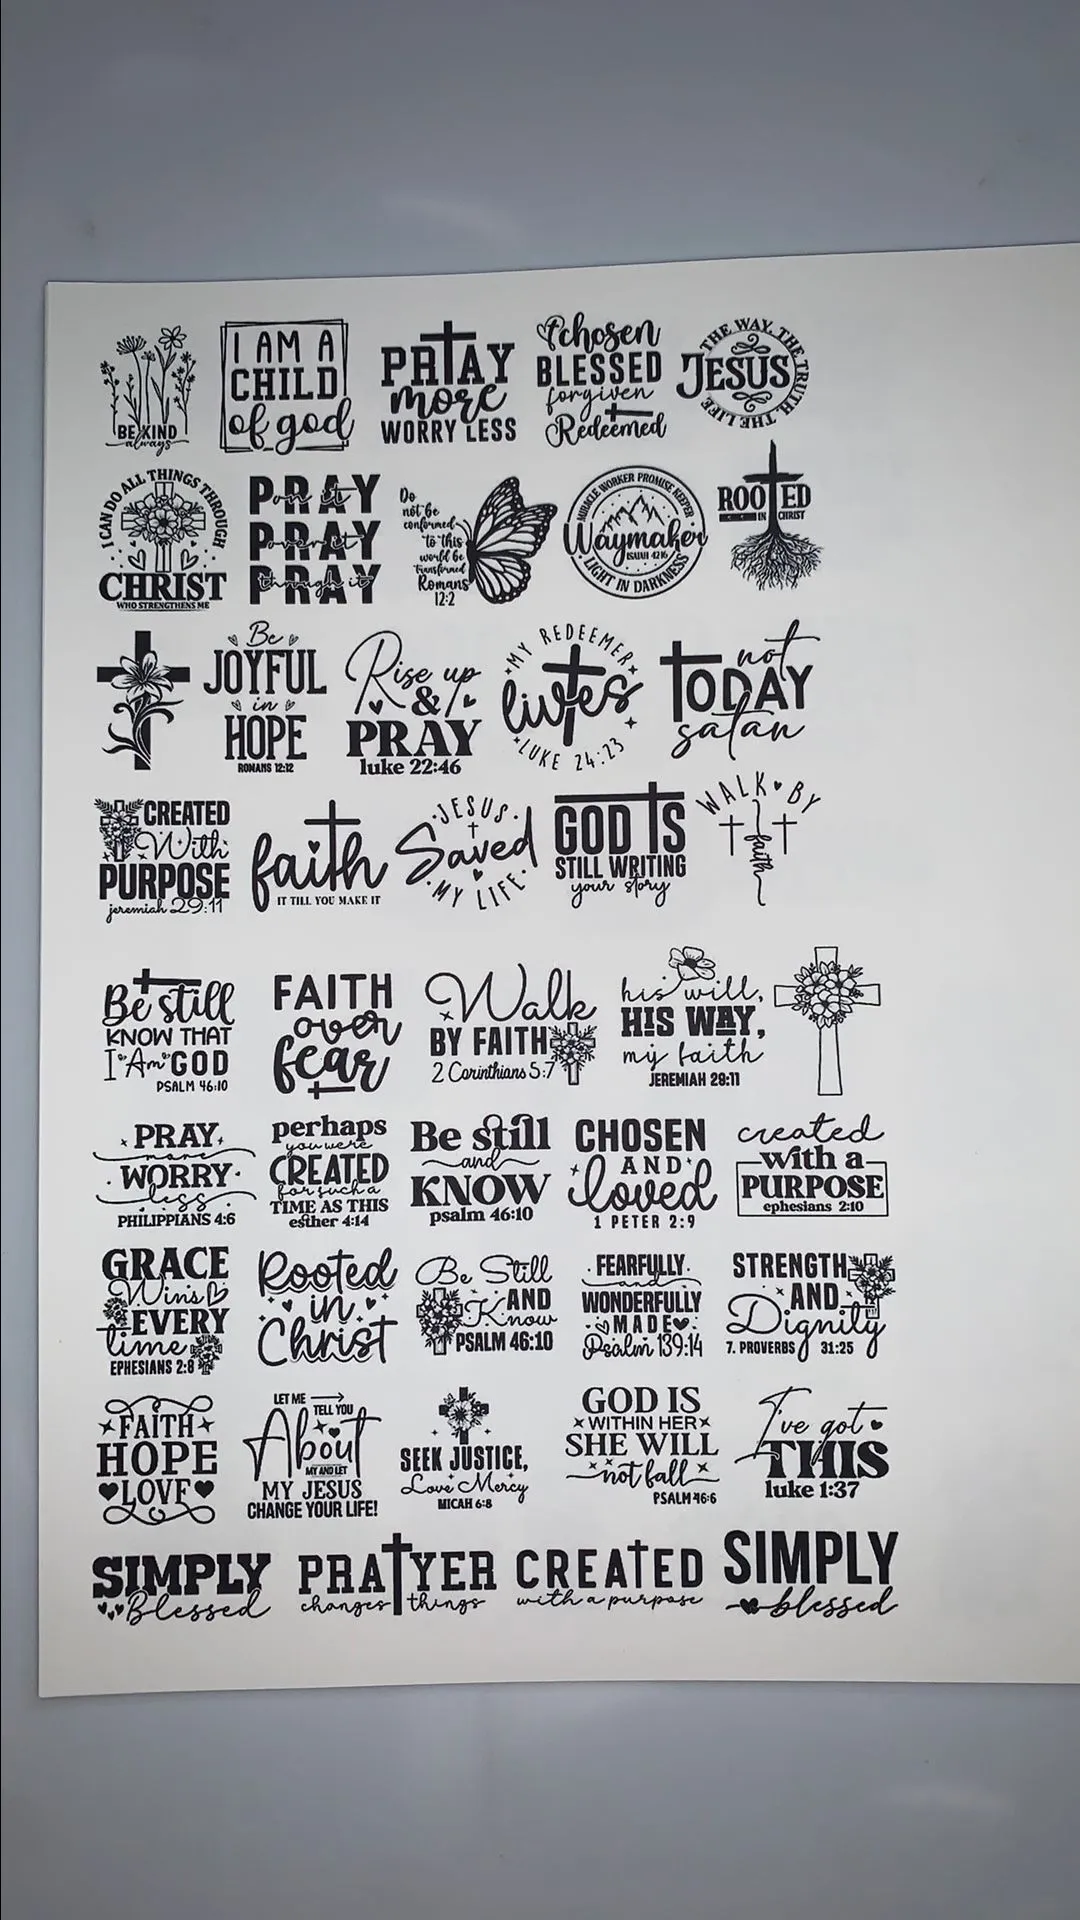 BE KIND
always
I AM A
CHILD
of god
PRAY
more
WORRY LESS
chosen
BLESSED
forgiven
Redeemed
THE WAY. THE TRUTH. THE LIFE
JESUS
I CAN DO ALL THINGS THROUGH
CHRIST
WHO STRENGTHENS ME
PRAY
on it
PRAY
over it
PRAY
through it
Do
not be
conformed
to this
world be
transformed
Romans
12:2
MIRACLE WORKER PROMISE KEEPER
Waymaker
ISAIAH 42:16
LIGHT IN DARKNESS
ROOTED
IN CHRIST
Be
JOYFUL
in
HOPE
ROMANS 12:12
Rise up
&
PRAY
luke 22:46
MY REDEEMER
lives
LUKE 24:23
not
TODAY
satan
CREATED
With
PURPOSE
jeremiah 29:11
faith
IT TILL YOU MAKE IT
JESUS
Saved
MY LIFE
GOD IS
STILL WRITING
your story
WALK BY
faith
Be still
KNOW THAT
I Am GOD
PSALM 46:10
FAITH
over
fear
Walk
BY FAITH
2 Corinthians 5:7
his will,
HIS WAY,
my faith
JEREMIAH 29:11
PRAY
more
WORRY
less
PHILIPPIANS 4:6
perhaps
you were
CREATED
for such a
TIME AS THIS
esther 4:14
Be still
and
KNOW
psalm 46:10
CHOSEN
AND
loved
1 PETER 2:9
created
with a
PURPOSE
ephesians 2:10
GRACE
Wins
EVERY
time
EPHESIANS 2:8
Rooted
in
Christ
Be Still
AND
Know
PSALM 46:10
FEARFULLY
and
WONDERFULLY
MADE
Psalm 139:14
STRENGTH
AND
Dignity
7. PROVERBS 31:25
FAITH
HOPE
LOVE
LET ME
TELL YOU
About
MY AND LET
MY JESUS
CHANGE YOUR LIFE!
SEEK JUSTICE,
Love Mercy
MICAH 6:8
GOD IS
WITHIN HER
SHE WILL
not fall
PSALM 46:6
I've got
THIS
luke 1:37
SIMPLY
Blessed
PRAYER
changes things
CREATED
with a purpose
SIMPLY
blessed